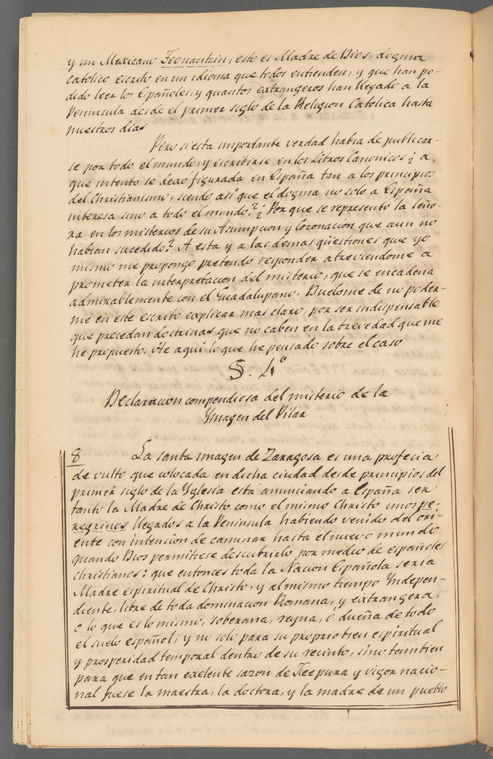 y un Mexicano Teonantzin; esto es Madre de Dios, dogma
catolico escrito en un idioma que todos entienden; y que han po-
dido leer los Españoles, y quantos extrangeros han llegado a la
Peninsula desde el primer siglo de la Religion Catolica hasta
nuestros dias
Pero si esta importante verdad habia de publicar-
se por todo el mundo, y escribirse en los Libros Canonicos ¿ a
que intento se dexo figurada en España tan a los principios
del Christianismo, siendo asi que el dogma no solo a España
interesa sino a todo el mundo? ¿ Por que se represento la Seño-
ra en los misterios de su Asumpcion y Coronacion que aun no
habian sucedido? A esta y a las demas qüestiones que yo
mismo me propongo pretendo responder atreviendome a
prometer la interpretacion del misterio, que se encadena
admirablemente con el Guadalupano. Duelome de no poder-
me en este escrito explicar mas claro, por ser indispensable
que precedan doctrinas que no caben en la brevedad que me
he propuesto. He aqui lo que he pensado sobre el caso
§. 4º
Declaracion compendiosa del misterio de la
Ymagen del Pilar
8 La santa imagen de Zaragosa es una profecia
de vulto que colocada en dicha ciudad desde principios del
primer siglo de la Yglesia esta anunciando a España ser
tanto la Madre de Christo como el mismo Christo unos pe-
regrinos llegados a la Peninsula habiendo venido del ori-
ente con intension de caminar hasta el nuevo mundo
quando Dios permitiese descubrirlo por medio de españoles
christianos: que entonces toda la Nacion Española seria
Madre espiritual de Christo, y al mismo tiempo Indepen-
diente, libre de toda dominacion Romana, y extrangera,
o lo que es lo mismo, soberana, reyna, o dueña de todo
el suelo español; y no solo para su proprio bien espiritual
y prosperidad temporal dentro de su recinto, sino tambien
para que en tan exelente sazon de y vigor nacio-
nal fuese la maestra, la doctora, y la madre de un pueblo